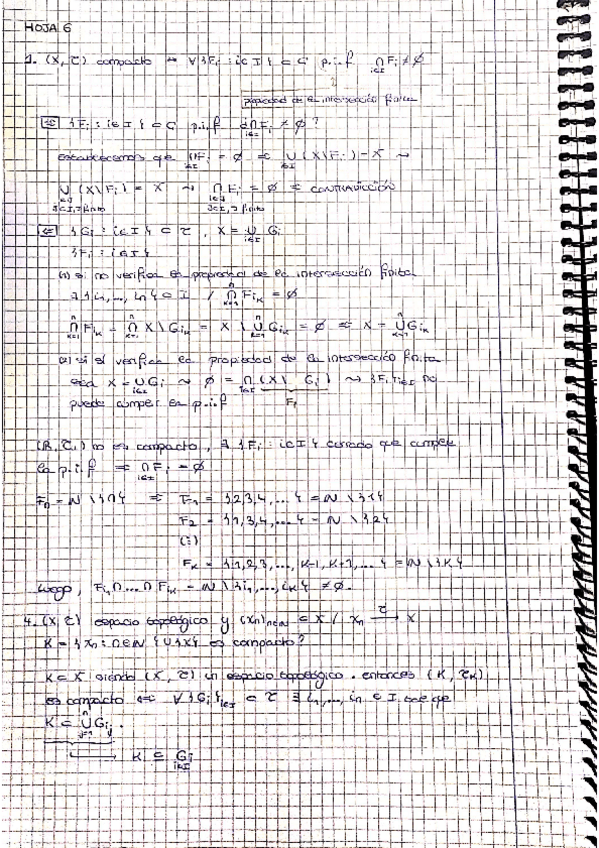 HOJA 6
1. (X, τ) compacto ⇔ ∀ {Fi : i∈I} ⊂ C p.i.f ∩i∈I Fi ≠ ∅
propiedad de la intersección finita
⇒ {Fi : i∈I} ⊂ C p.i.f ¿∩i∈I Fi ≠ ∅?
que ∩i∈I Fi = ∅ ⇒ ∪i∈I (X\Fi) = X ⇝
∪i∈J (X\Fi) = X ⇝ ∩i∈J Fi = ∅ ⇒ CONTRADICCIÓN
J⊂I, J finito J⊂I, J finito
⇐ {Gi : i∈I} ⊂ τ, X = ∪i∈I Gi
{Fi : i∈I}
(1) si no verifica la propiedad de la intersección finita
∃ {i1, ..., in} ⊂ I / ∩k=1^n Fik = ∅
∩k=1^n Fik = ∩k=1^n X\Gik = X \ ∪k=1^n Gik = ∅ ⇒ X = ∪k=1^n Gik
(2) si sí verifica la propiedad de la intersección finita
sea X = ∪i∈I Gi ⇝ ∅ = ∩i∈I (X\Gi) ⇝ {Fi}i∈I no
Fi
puede cumplir la p.i.f
(R, τ) no es compacto, ∃ {Fi : i∈I} cerrado que cumple
la p.i.f ⇒ ∩i∈I Fi = ∅
Fn = N \ {n} ⇒ F1 = {2,3,4,...} = N \ {1}
F2 = {1,3,4,...} = N \ {2}
(⋮)
Fk = {1,2,3,...,k-1,k+1,...} = N \ {k}
Luego, Fi1 ∩ ... ∩ Fik = N \ {i1,...,ik} ≠ ∅.
4. (X, τ) espacio topológico y (xn)n∈N ⊂ X / xn →τ x
K = {xn : n∈N} ∪ {x} es compacto?
K ⊂ X siendo (X, τ) un espacio topológico. entonces (K, τK)
es compacto ⇔ ∀ {Gi}i∈I ⊂ τ ∃ i1,...,in ∈ I tal que
K ⊂ ∪j=1^n Gij.
K ⊆ Gi
i∈I